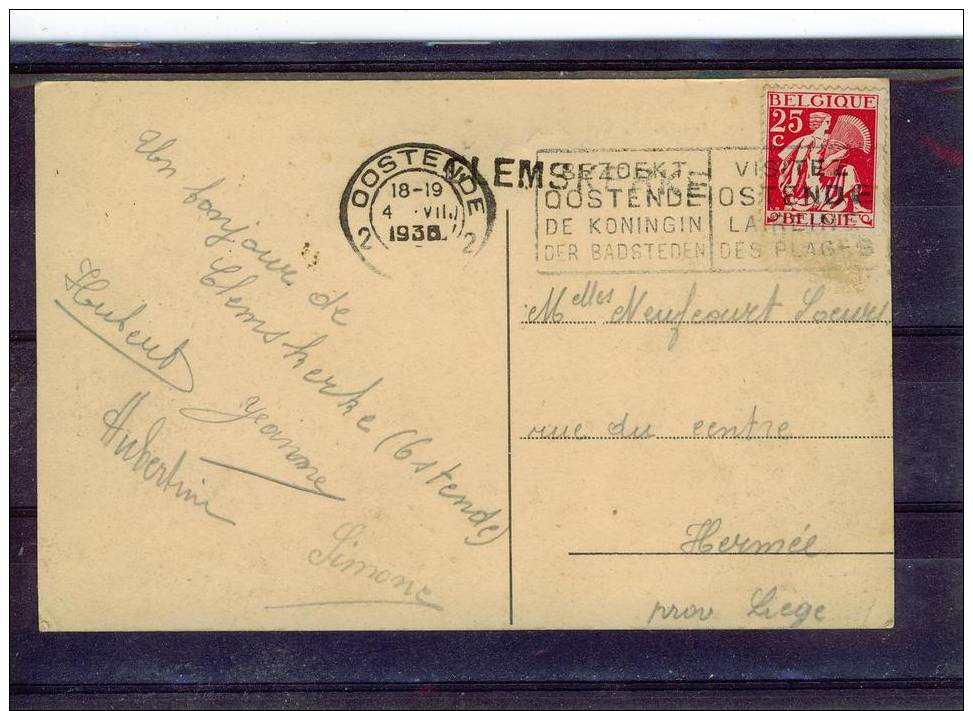 Un bonjour de
Clemskerke (Ostende)
Hubert
Jeanne
Hubertine
Simone
OOSTENDE
18-19
4 VIII
193
2 2
CLEMSKERKE
BEZOEKT
OOSTENDE
DE KONINGIN
DER BADSTEDEN
VISITEZ
OSTENDE
LA REINE
DES PLAGES
BELGIQUE
25
C
BELGIË
Melles Neufcourt Soeurs
rue du centre
Hermée
prov Liege